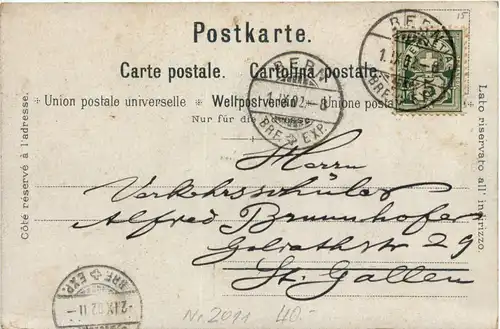 15
Postkarte.
Carte postale. Cartolina postale.
Union postale universelle Weltpostverein Unione postale
Nur für die Adresse.
BERN
1.IX.02.-8
BRE EXP.
BERN
1.IX.02
BRE
HELVETIA
5
Côté réservé à l'adresse.
Lato riservato all' indirizzo.
Herrn
Verkehrsschüler
Alfred Brunnhofer
Goliathstr 29
St. Gallen
BRF EXP.
-2.IX.02 11-
Nr. 2011 40.-